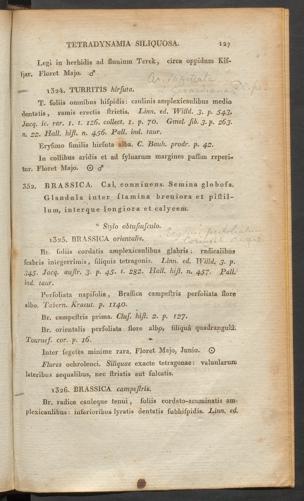 TETRADYNAMIA SILIQUOSA. 127
Legi in herbidis ad fluvium Terek, circa oppidum Kis-
ljar. Floret Majo. ♂
1324. TURRITIS hirsuta.
T. foliis omnibus hispidis: caulinis amplexicaulibus medio
dentatis, ramis erectis strictis. Linn. ed. Willd. 3. p. 543.
Jacq. ic. rar. 1. t. 126. collect. 1. p. 70. Gmel. sib. 3. p. 263.
n. 22. Hall. hist. n. 456. Pall. ind. taur.
Erysimo similis hirsuta alba. C. Bauh. prodr. p. 42.
In collibus aridis et ad sylvarum margines passim reperi-
tur. Floret Majo. ☉ ♂
352. BRASSICA. Cal. connivens. Semina globosa.
Glandula inter stamina breviora et pistil-
lum, interque longiora et calycem.
* Stylo obtusiusculo.
1325. BRASSICA orientalis.
Br. foliis cordatis amplexicaulibus glabris: radicalibus
scabris integerrimis, siliquis tetragonis. Linn. ed. Willd. 3. p.
545. Jacq. austr. 3. p. 45. t. 282. Hall. hist. n. 457. Pall.
ind. taur.
Perfoliata napifolia, Brassica campestris perfoliata flore
albo. Tabern. Kraeut. p. 1140.
Br. campestris prima. Clus. hist. 2. p. 127.
Br. orientalis perfoliata flore albo, siliquâ quadrangulâ.
Tournef. cor. p. 16.
Inter segetes minime rara. Floret Majo, Junio. ☉
Flores ochroleuci. Siliquae exacte tetragonae: valvularum
lateribus aequalibus, nec striatis aut sulcatis.
1326. BRASSICA campestris.
Br. radice cauleque tenui, foliis cordato-acuminatis am-
plexicaulibus: inferioribus lyratis dentatis subhispidis. Linn. ed.